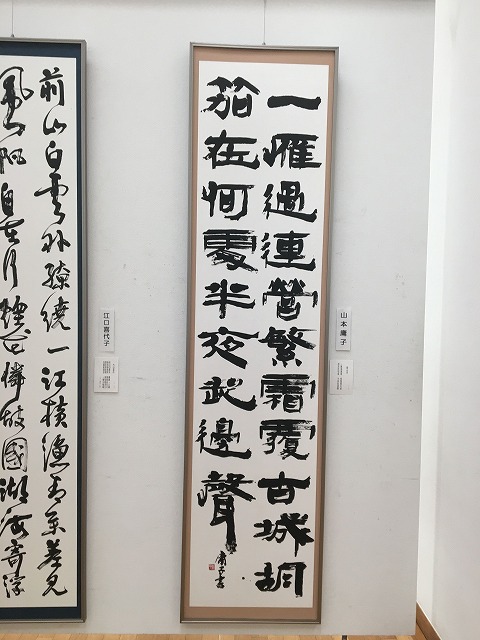 一雁過連營繁霜覆古城胡
笳在何處半夜起邊聲
庸子書
山本庸子
前山白雲外繚繞一江横漁差見
風帆自在行煙花憐故國湖海寄浮
江口喜代子